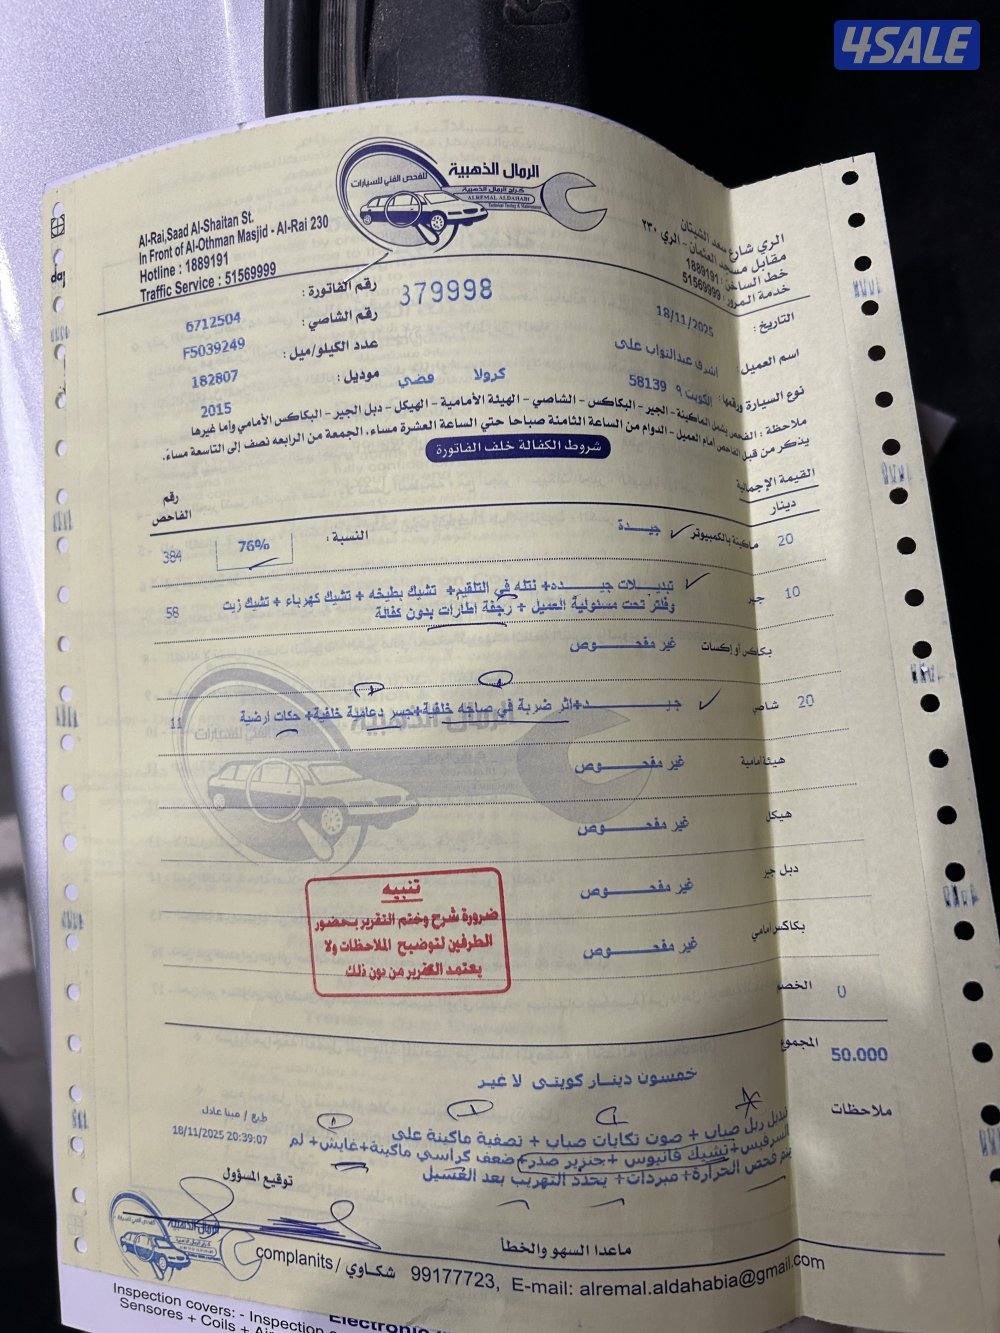 4SALE
الرمال الذهبية
للفحص الفني للسيارات
كراج الرمال الذهبية
ALREMAL ALDAHABI
Technical Testing & Maintenance
Al-Rai,Saad Al-Shaitan St.
In Front of Al-Othman Masjid - Al-Rai 230
Hotline : 1889191
Traffic Service : 51569999
الري شارع سعد الشيتان
مقابل مسجد العثمان - الري ٢٣٠
خط الساخن : 1889191
خدمة المرور : 51569999
رقم الفاتورة : 379998
التاريخ : 18/11/2025
رقم الشاصي : 6712504
F5039249
اسم العميل : اشرف عبدالتواب على
عدد الكيلو/ميل : 182807
نوع السيارة ورقمها : الكويت ٩ 58139 كرولا فضي
موديل : 2015
ملاحظة : الفحص يشمل الماكينة - الجير - البكاكس - الشاصي - الهيئة الأمامية - الهيكل - دبل الجير - البكاكس الأمامي وأما غيرها
يذكر من قبل الفاحص أمام العميل - الدوام من الساعة الثامنة صباحا حتي الساعة العشرة مساء، الجمعة من الرابعه نصف إلى التاسعة مساء.
شروط الكفالة خلف الفاتورة
القيمة الإجمالية
دينار
رقم
الفاحص
20 ماكينة بالكمبيوتر جيـــدة النسبة : 76% 384
10 جير تبديـــلات جيـــده+ نتله في التلقيم+ تشيك بطيخه + تشيك كهرباء + تشيك زيت
وفلتر تحت مسئولية العميل + رجفة إطارات بدون كفالة 58
بكاكس أو إكسات غير مفحـــوص
20 شاصي جيـــد+اثر ضربة في صاجه خلفية+جسر دعامية خلفية+ حكات ارضية 11
هيئة أمامية غير مفحـــوص
هيكل غير مفحـــوص
دبل جير غير مفحـــوص
بكاكس أمامي غير مفحـــوص
تنبيه
ضرورة شرح وختم التقرير بحضور
الطرفين لتوضيح الملاحظات ولا
يعتمد التقرير من دون ذلك
الخصم 0
المجموع 50.000
خمسون دينار كويتى لا غير
ملاحظات
تبديل ربل صباب + صوت تكايات صباب + تصفية ماكينة على
السرفيس+ تشيك فانيوس + جنزير صدر+ ضعف كراسي ماكينة+ غايش+ لم
يتم فحص الحرارة+ مبردات+ يحدد التهريب بعد الغسيل
طبع / مينا عادل
18/11/2025 20:39:07
توقيع المسؤول
ماعدا السهو والخطأ
complanits / شكاوي 99177723, E-mail: alremal.aldahabia@gmail.com
Inspection covers: - Inspection
Sensores + Coils +